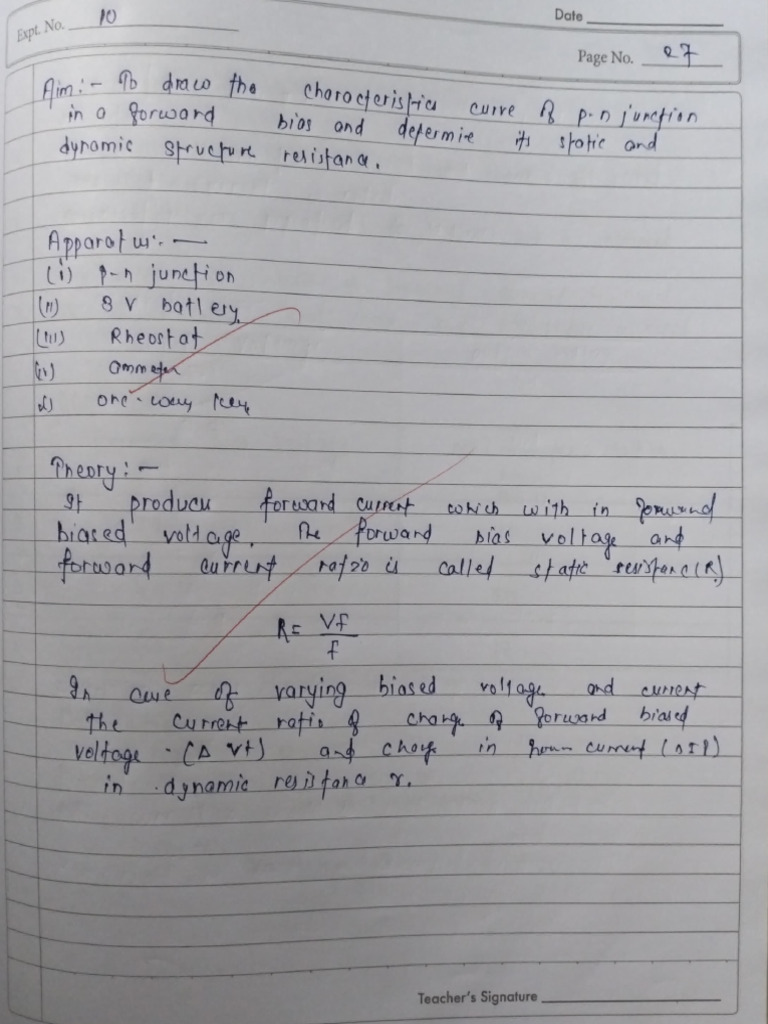 Expt. No. 10
Date
Page No. 27
Aim:- To draw the characteristics curve of p-n junction
in a forward bias and determie its static and
dynamic structure resistana.
Apparatus:-
(i) p-n junction
(ii) 8 V battery
(iii) Rheostat
(iv) ammeter
one-way key
Theory:-
It producu forward current which with in forward
biased voltage. The forward bias voltage and
forward current ratio is called static resistanc(R)
R= Vf
f
In case of varying biased voltage and current
the current ratio of change of forward biased
voltage (Δ Vf) and change in current (ΔIf)
in dynamic resistana r.
Teacher's Signature